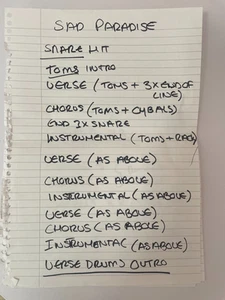 SAD PARADISE
SNARE HIT
TOMS INTRO
VERSE (TOMS + 3X END OF
LINE)
CHORUS (TOMS + CYBALS)
END 3X SNARE
INSTRUMENTAL (TOMS + RACK)
VERSE (AS ABOVE)
CHORUS (AS ABOVE)
INSTRUMENTAL (AS ABOVE)
VERSE (AS ABOVE)
CHORUS (AS ABOVE)
INSTRUMENTAL (AS ABOVE)
VERSE DRUMS OUTRO